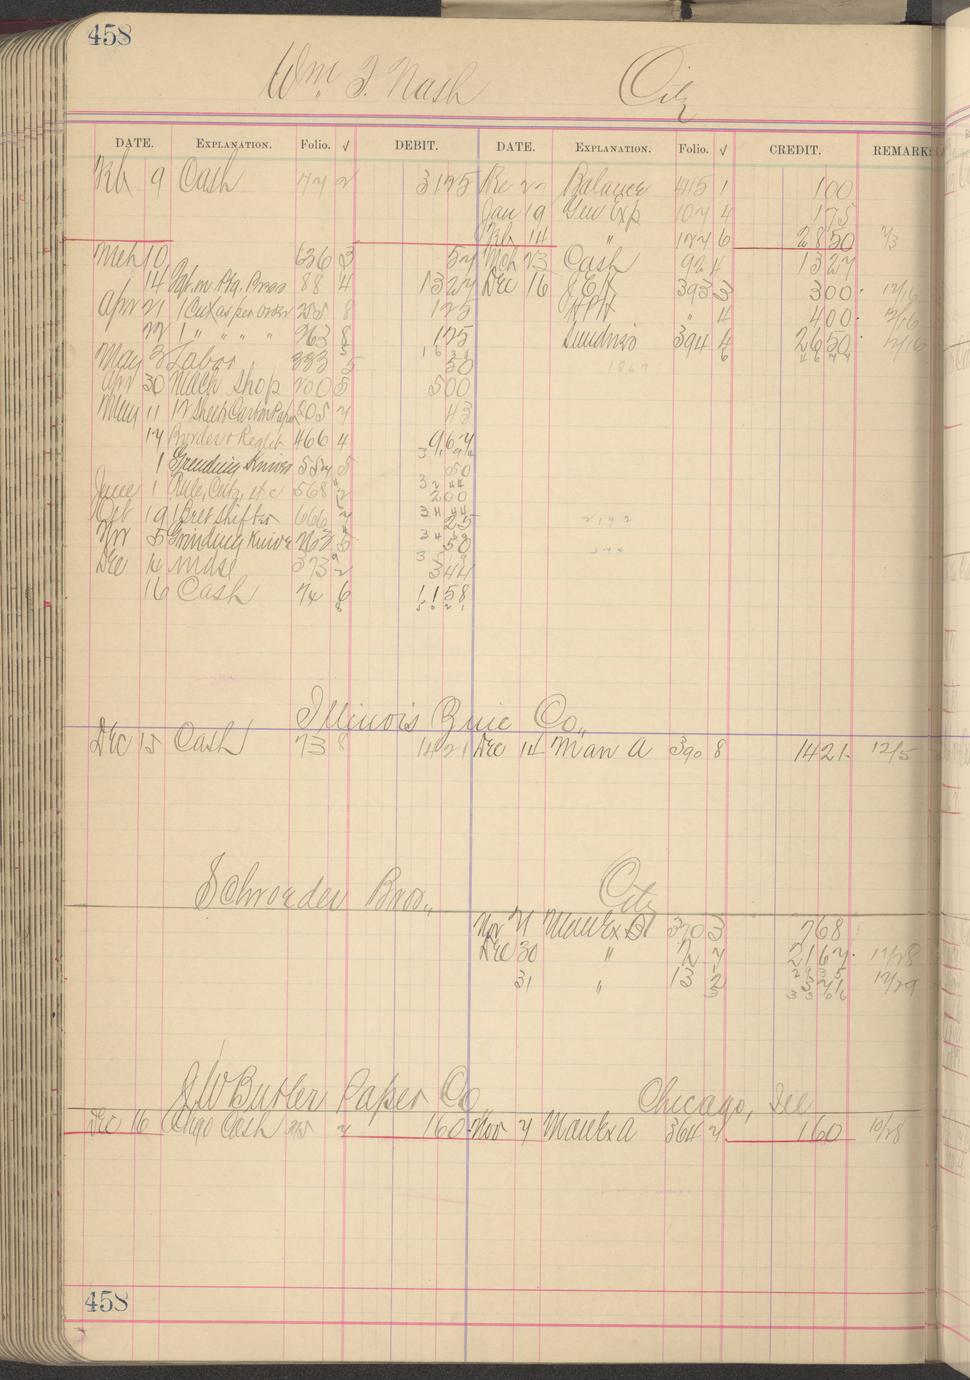 458
Wm. F. Nash City
DATE. EXPLANATION. Folio. √ DEBIT. DATE. EXPLANATION. Folio. √ CREDIT. REMARKS
Feb 9 Cash 74 2 3125 Dec 27 Balance 415 1 100
Jan 19 Gen Exp 107 4 175
Feb 14 " 147 6 2850 7/3
Mch 10 636 3 57 Mch 23 Cash 92 4 1327
14 Ptg. Bros 88 4 1327 Dec 16 393 3 300 12/16
Apr 21 1 Cut as per order 255 8 125 " 4 400 12/16
22 1 " " " " 263 8 175 Sundries 394 4 2650 12/16
May 3 Labor 333 5 50
1867
Apr 30 Mach Shop 200 5 500
May 11 12 Sheets Carbon Paper 205 7 43
17 Border & Reglet 466 4 967
1 Grinding Knives 5 50
June 1 Rule, Cuts, etc 568 2 200
Oct 19 1 Belt Shifter 666 7 25
2192
Nov 5 Grinding Knives 5 50
344
Dec 14 Mdse 373 2 344
16 Cash 74 6 1158
5021
Illinois Zinc Co.,
Dec 15 Cash 73 8 1421 Dec 14 Man A 390 8 1421 12/5
Schroeder Bros., City
Nov 21 Man Ex 370 3 768
Dec 30 " 12 7 2167 12/28
2935
31 " 13 2 371 12/29
J W Butler Paper Co Chicago, Ill
Dec 16 Chgo Cash 7 160 Nov 7 Man Ex A 364 7 160 10/28
458